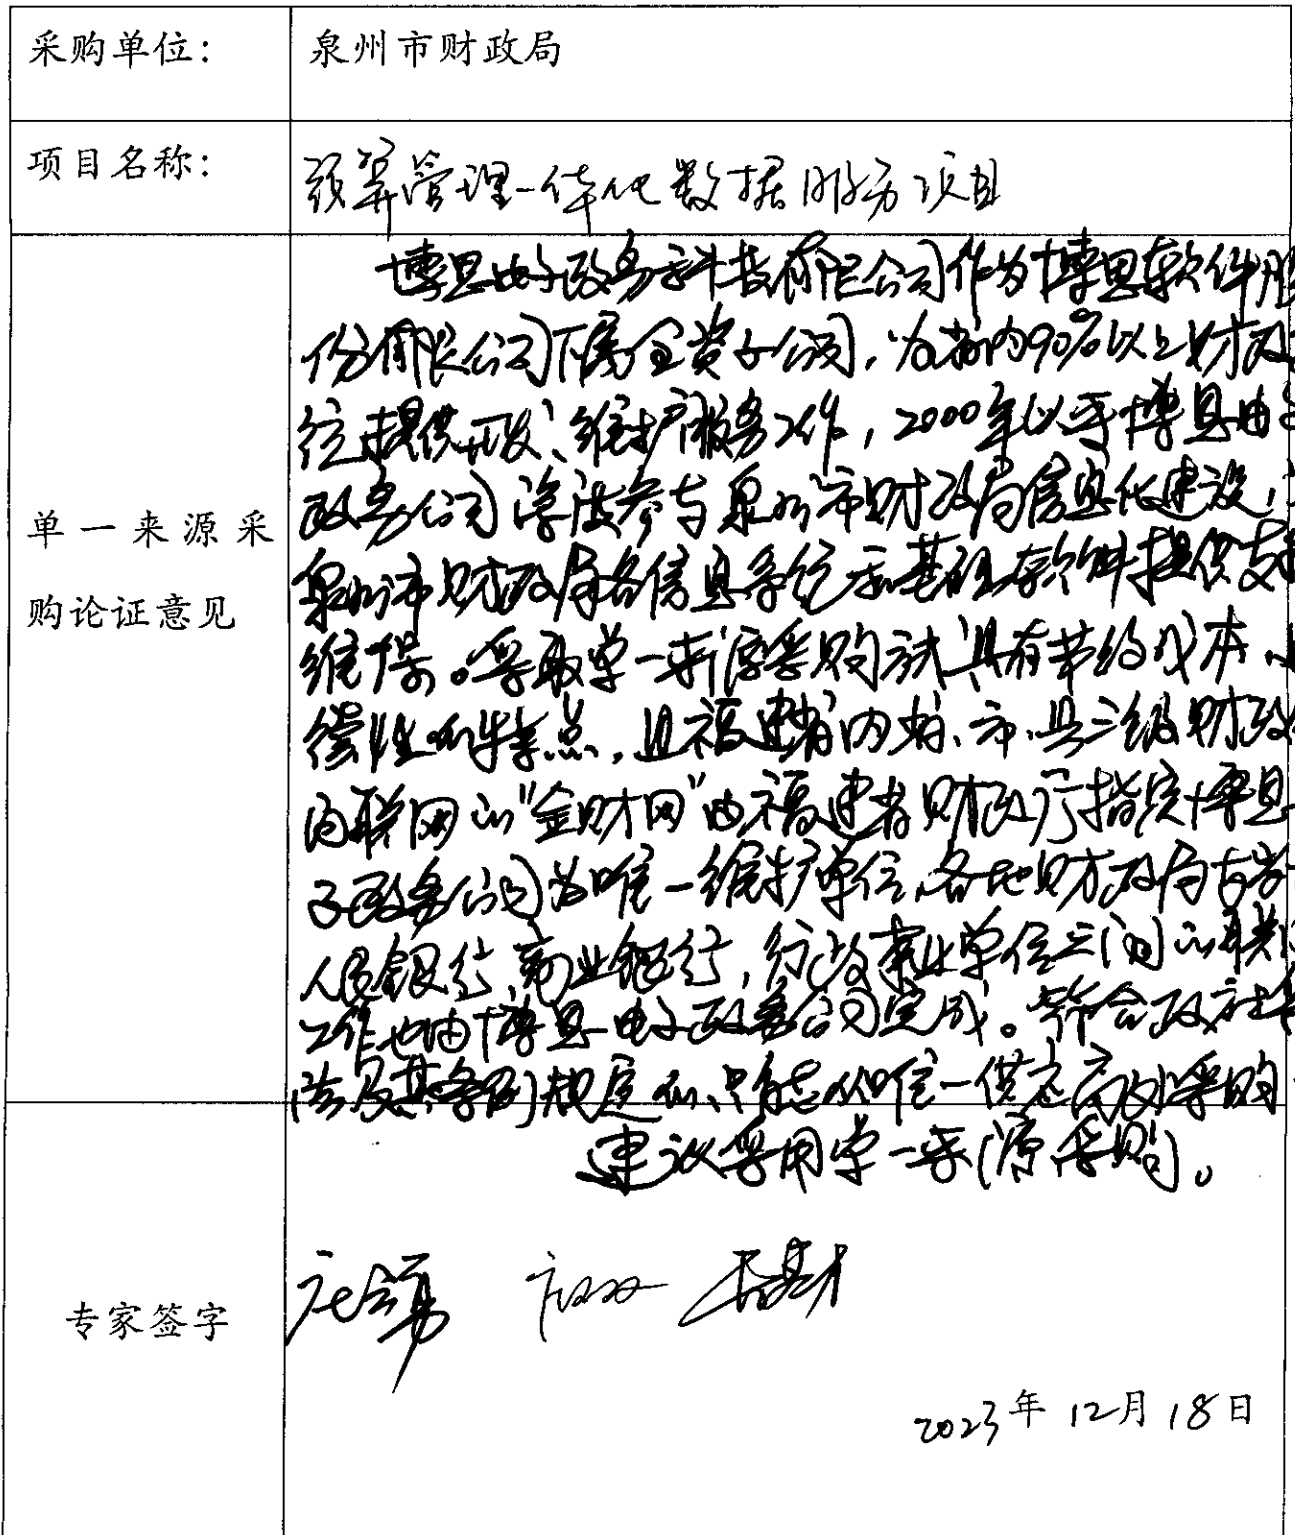 采购单位： 泉州市财政局
项目名称： 预算管理一体化数据服务项目
单一来源采
购论证意见
博思电子政务科技有限公司作为博思软件股
份有限公司下属全资子公司，为省内90%以上财政
提供开发、维护服务工作，2000年以来博思电子
政务公司深度参与泉州市财政局信息化建设，
泉州市财政局各信息系统和基础软件提供支持
维保。采取单一来源采购方式具有节约成本、
偿性的特点，且福建省内省、市、县三级财政
内联网的“金财网”由福建省财政厅指定博思
子政务公司为唯一维护单位，各地财政局与当
人民银行、商业银行，行政事业单位之间的联
工作也由博思电子政务公司完成。符合政府采
法及其条例规定的、只能从唯一供应商处采购
建议采用单一来源采购。
专家签字
2023年12月18日